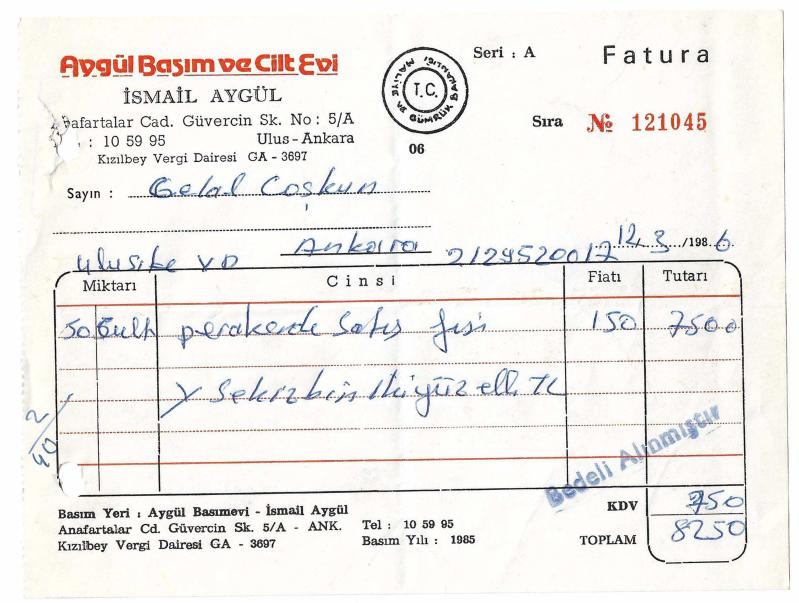 Aygül Basım ve Cilt Evi
İSMAİL AYGÜL
Anafartalar Cad. Güvercin Sk. No : 5/A
: 10 59 95 Ulus - Ankara
Kızılbey Vergi Dairesi GA - 3697
T.C.
MALİYE VE GÜMRÜK BAKANLIĞI
06
Seri : A Fatura
Sıra № 121045
Sayın : Celal Coşkun
Ankara
12 3 /1986
Ulus V D 2129520017
Miktarı Cinsi Fiatı Tutarı
50 perakende Satış fişi 150 7500
Y Sekizbin ikiyüz elli TL
2/40
Bedeli Alınmıştır
KDV 750
TOPLAM 8250
Basım Yeri : Aygül Basımevi - İsmail Aygül
Anafartalar Cd. Güvercin Sk. 5/A - ANK. Tel : 10 59 95
Kızılbey Vergi Dairesi GA - 3697 Basım Yılı : 1985